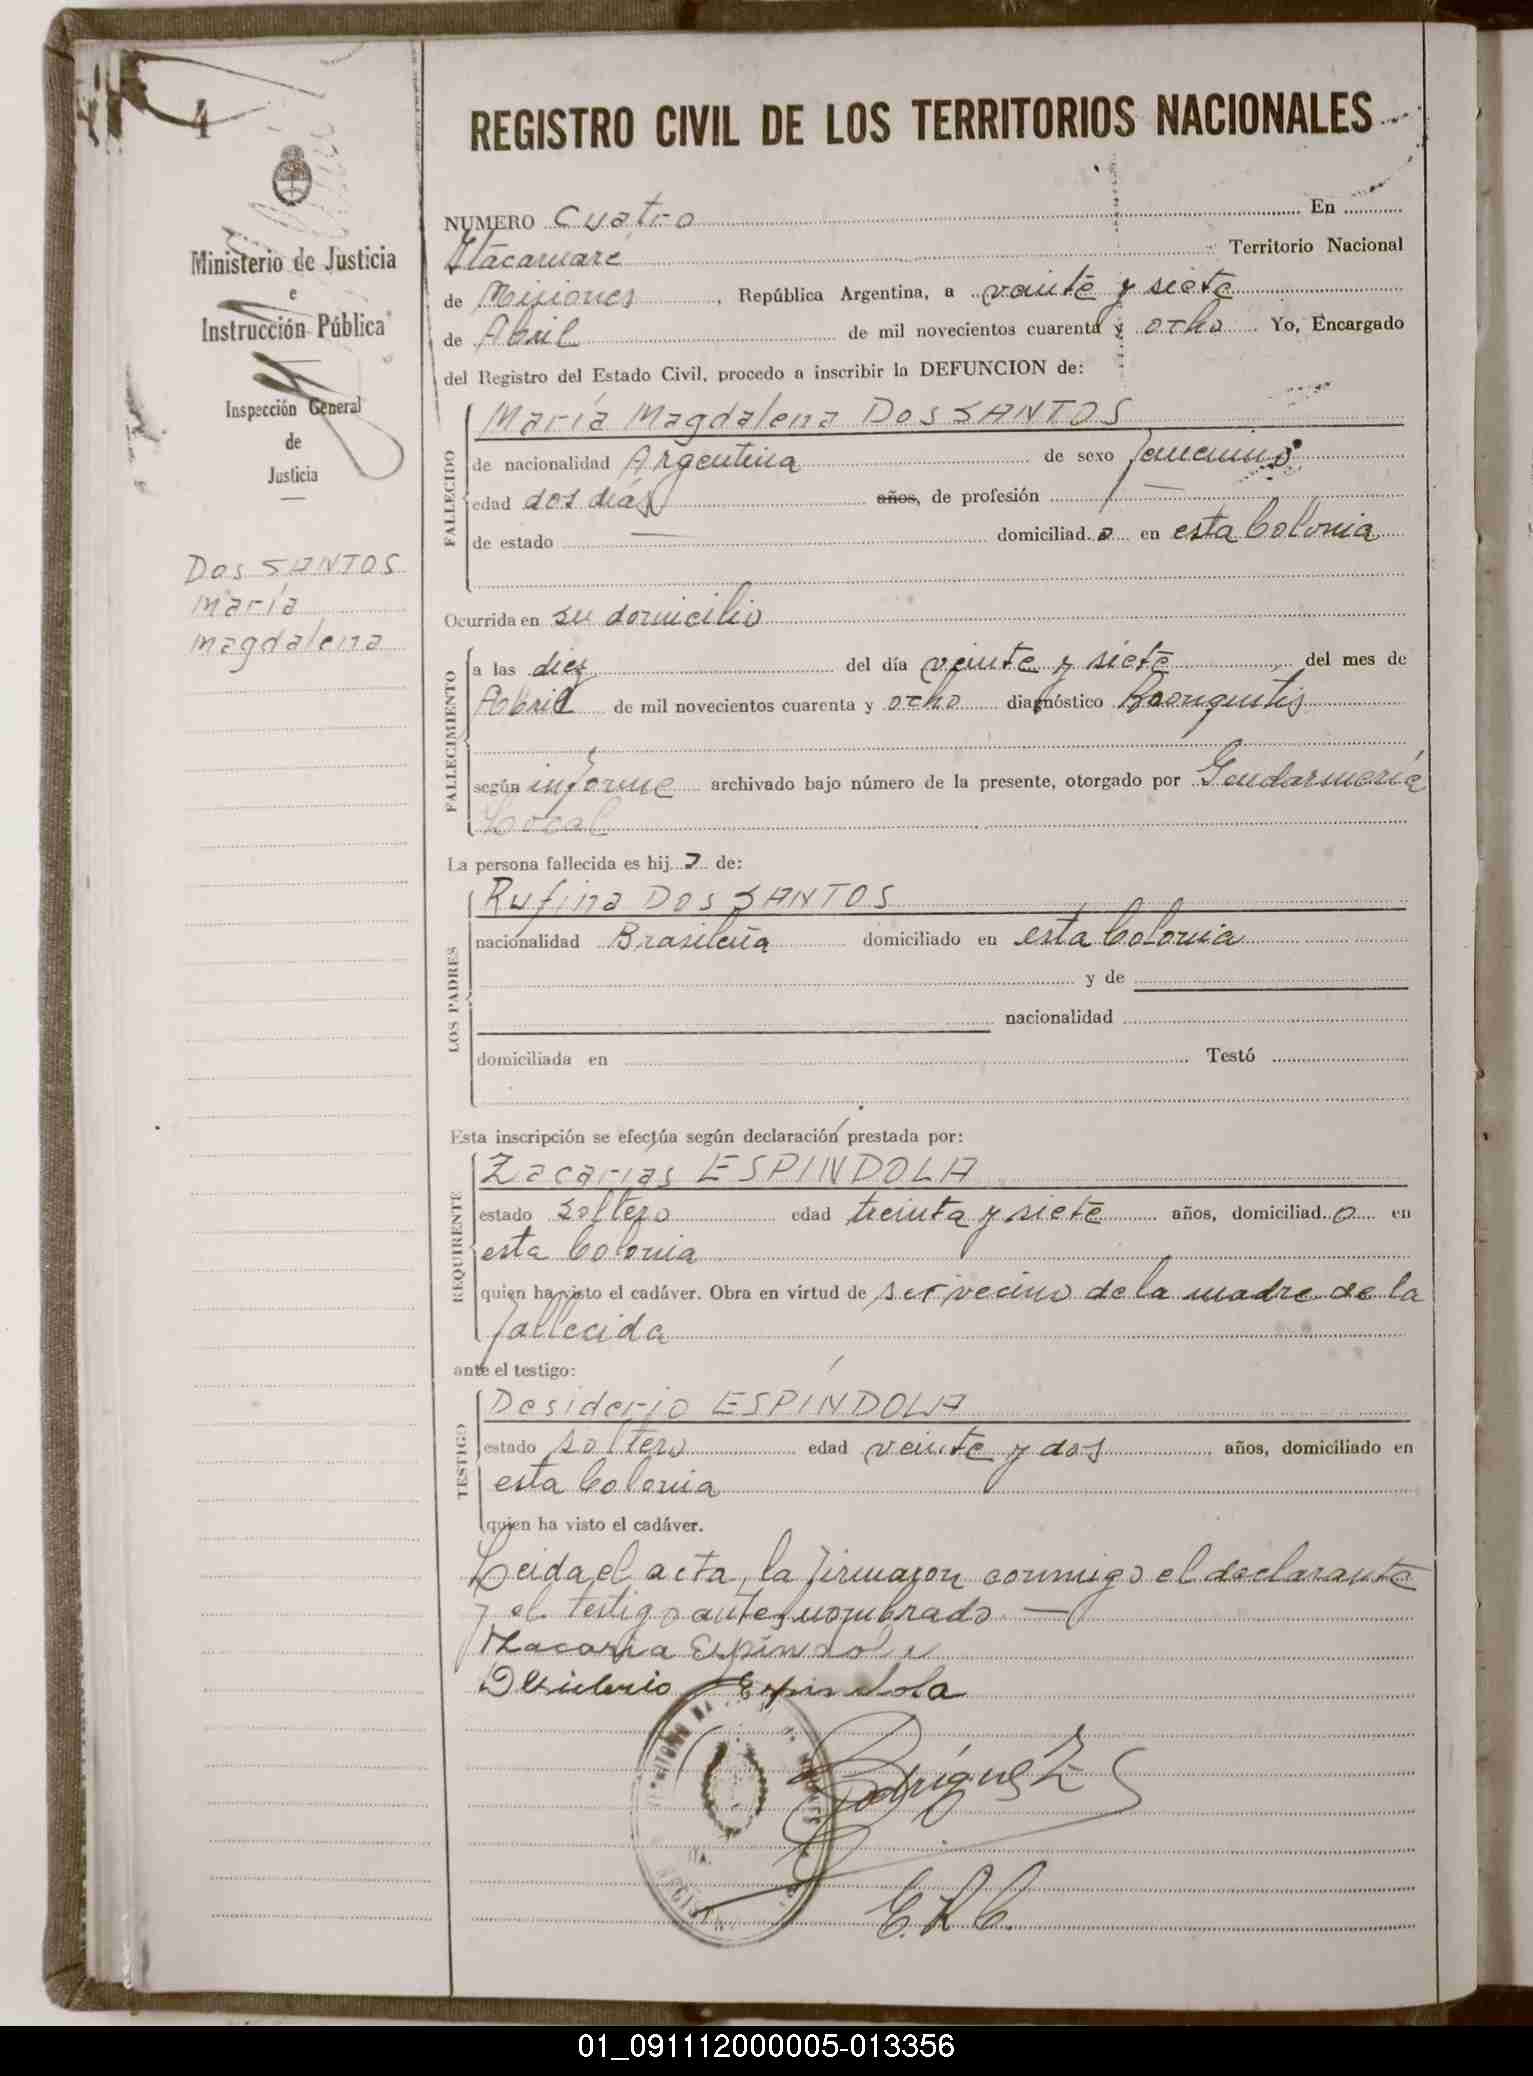 4
Ministerio de Justicia
e
Instrucción Pública
Inspección General
de
Justicia
Dos SANTOS
María
Magdalena
REGISTRO CIVIL DE LOS TERRITORIOS NACIONALES
NUMERO Cuatro En
Itacaruaré Territorio Nacional
de Misiones, República Argentina, a veinte y siete
de Abril de mil novecientos cuarenta y ocho Yo, Encargado
del Registro del Estado Civil, procedo a inscribir la DEFUNCION de:
FALLECIDO
María Magdalena Dos SANTOS
de nacionalidad Argentina de sexo femenino
edad dos días años, de profesión —
de estado — domiciliad a en esta Colonia
Ocurrida en su domicilio
FALLECIMIENTO
a las diez del día veinte y siete del mes de
Abril de mil novecientos cuarenta y ocho diagnóstico Bronquitis
según informe archivado bajo número de la presente, otorgado por Gendarmería
Local
La persona fallecida es hij a de:
LOS PADRES
Rufina Dos SANTOS
nacionalidad Brasileña domiciliado en esta Colonia
y de
nacionalidad
domiciliada en Testó
Esta inscripción se efectúa según declaración prestada por:
REQUIRENTE
Zacarías ESPINDOLA
estado soltero edad treinta y siete años, domiciliad o en
esta Colonia
quien ha visto el cadáver. Obra en virtud de ser vecino de la madre de la
fallecida
ante el testigo:
TESTIGO
Desiderio ESPÍNDOLA
estado soltero edad veinte y dos años, domiciliado en
esta Colonia
quien ha visto el cadáver.
Leida el acta, la firmaron conmigo el declarante
y el testigo antes nombrado. —
Zacaria Espindola
Desiderio Espindola
Rodríguez
E.R.C.
01_091112000005-013356